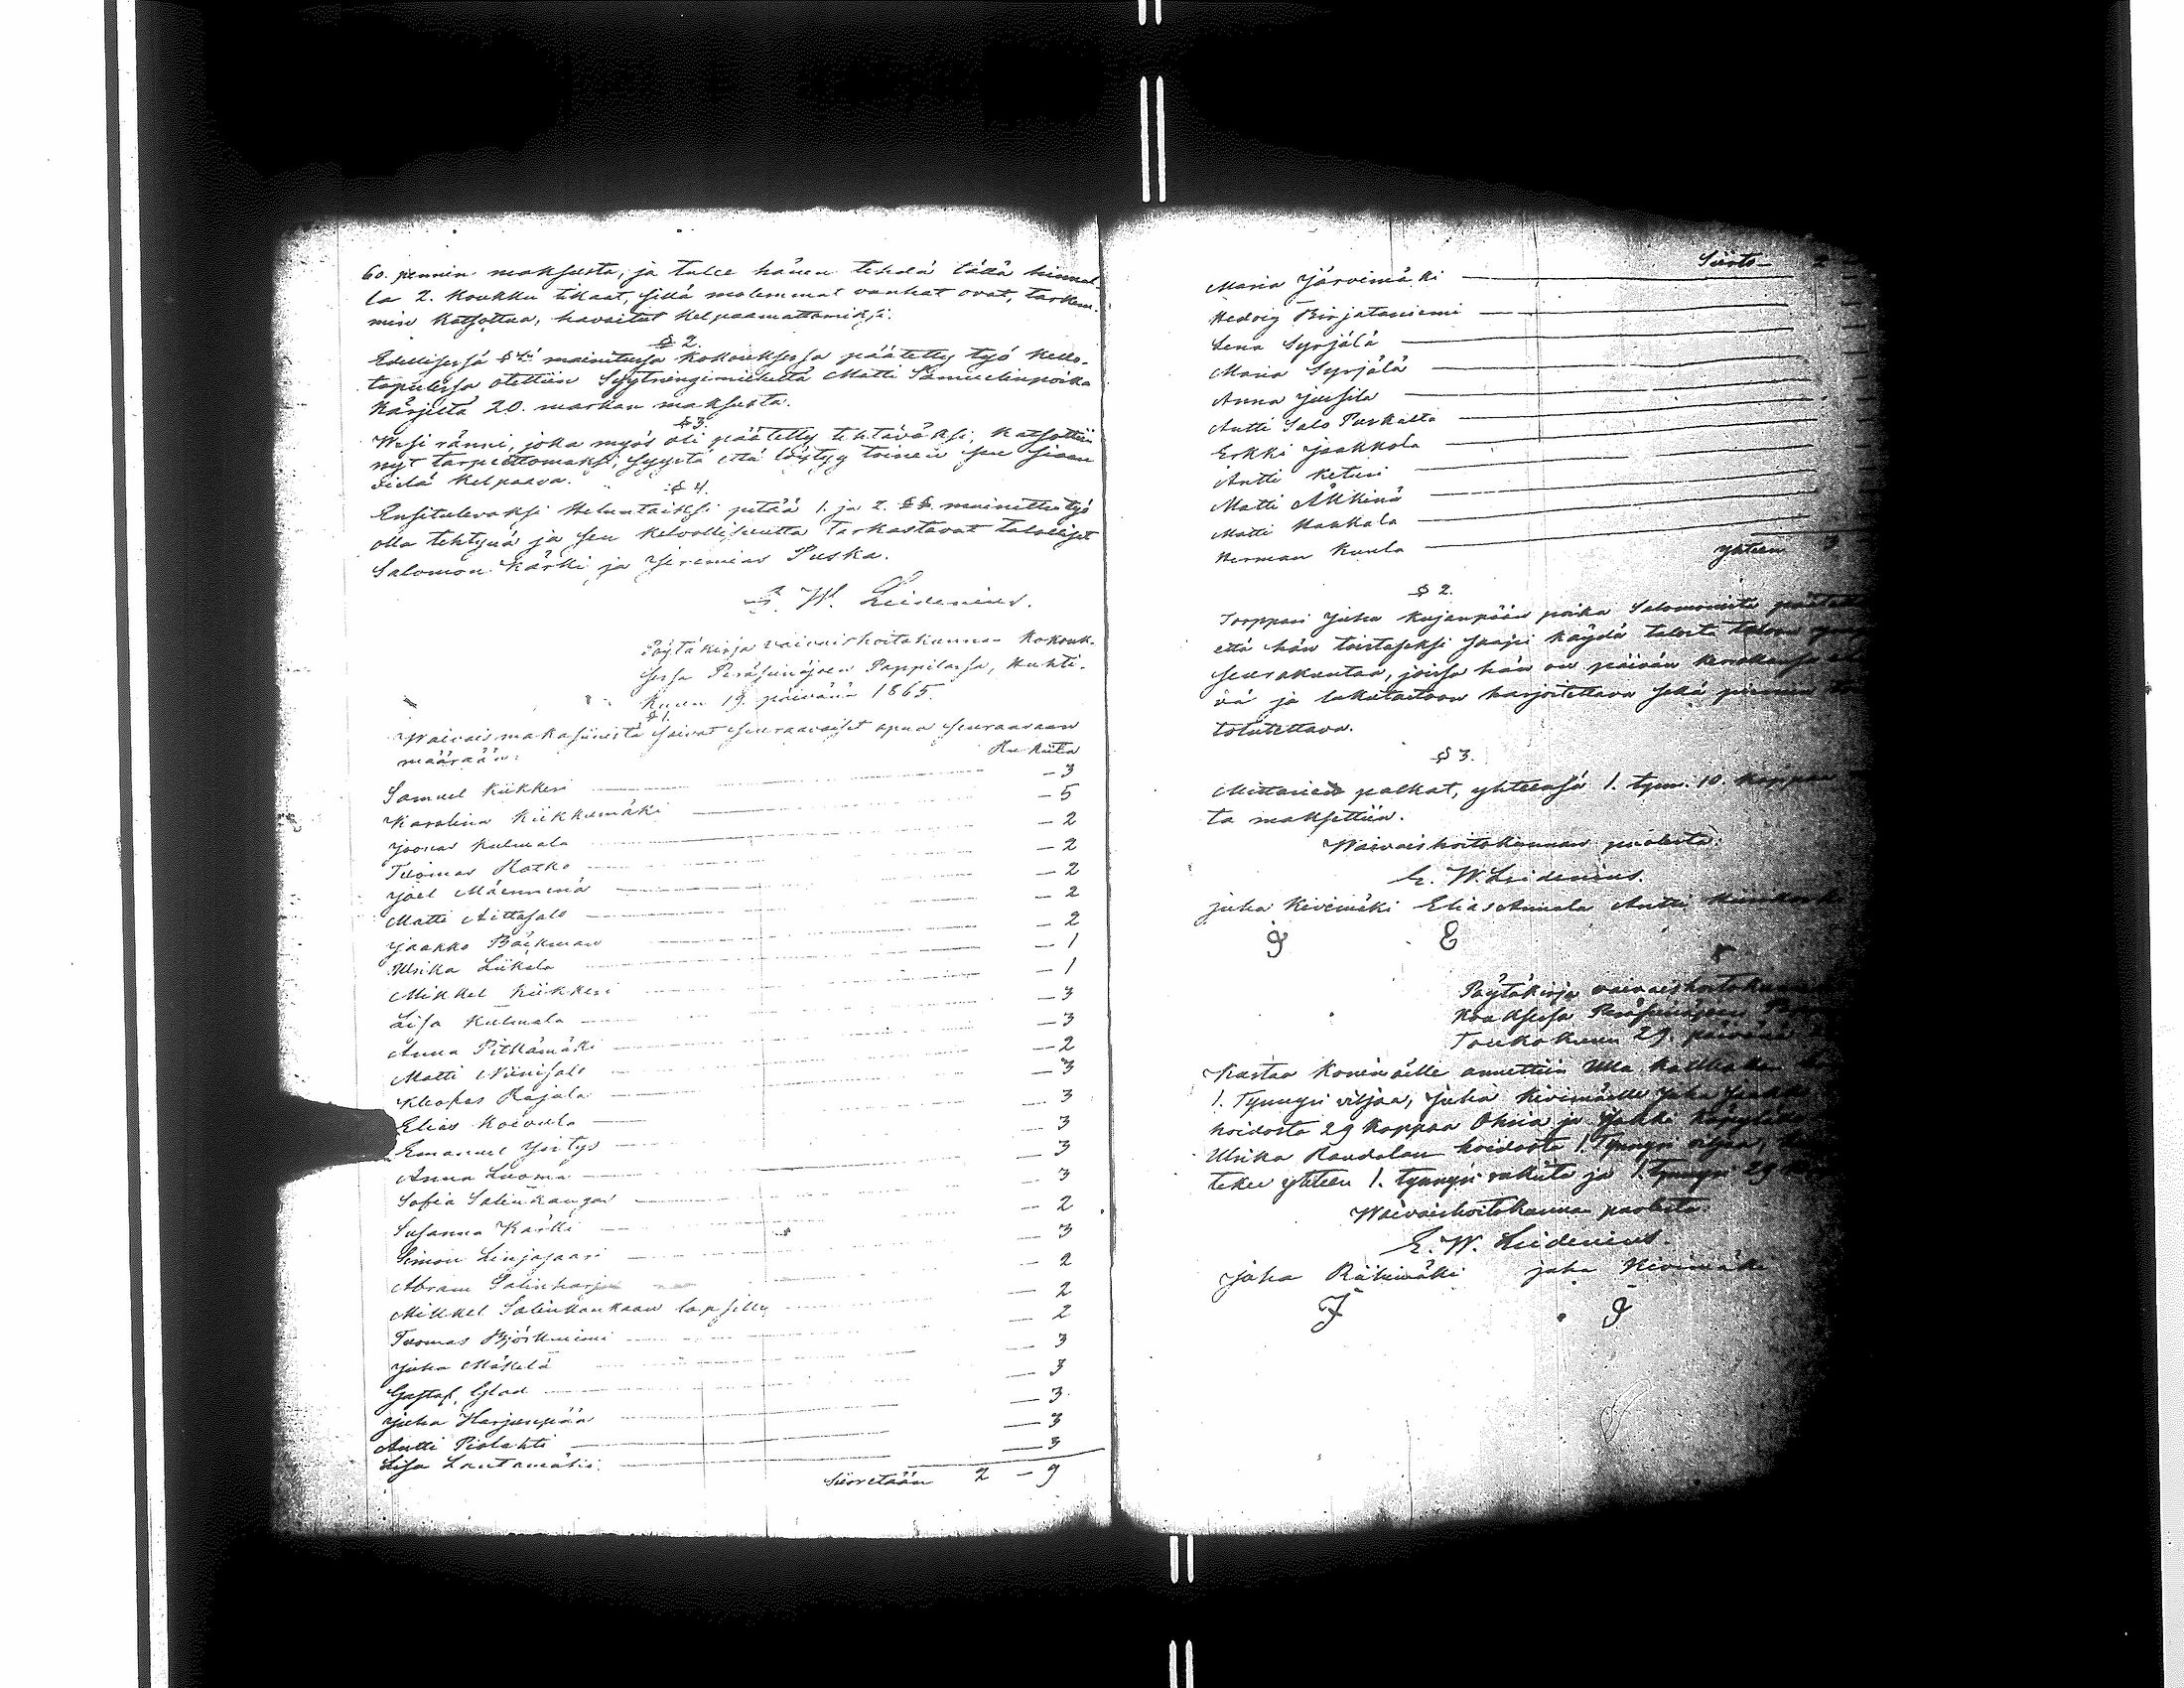 60. pennin maksusta, ja tulee hänen tehdä tällä hinnal-
la 2. koukku tikaat, sillä molemmat vanhat ovat, tarkem-
min katsottua, havaitut kelpaamattomiksi.
§ 2.
Edellisessä § mainitussa kokouksessa päätetty työ kello-
tapulissa otettiin Syytningimieheltä Matti Samuelinpoika
Kärjeltä 20. markan maksusta.
§ 3.
Wesi ränni, joka myös oli päätetty tehtäväksi, katsottiin
nyt tarpeettomaksi, syystä että löytyy toinen sen siaan
vielä kelpaava.
§ 4.
Ensitulevaksi Heluntaiksi pitää 1. ja 2. §§. mainittu työ
olla tehtynä ja sen kelvollisuutta tarkastavat talolliset
Salomon Kärki ja Jeremias Puska.
E. W. Leidenius.
Pöytäkirja vaivaishoitokunnan kokouk-
sessa Peräseinäjoen Pappilassa, Huhti-
kuun 19. päivänä 1865.
§ 1.
Waivaismakasiinista saivat seuraavaiset apua seuraavaan
määrään:
Rukiita
Samuel Kiikkeri — 3
Karolina Kiikkumäki — 5
Joonas Kulmala — 2
Tuomas Hotko — 2
Joel Mäenmenä — 2
Matti Aittasalo — 2
Jaakko Bäckman — 2
Ulrika Liikala — 1
Mikkel Kiikkeri — 1
Lisa Kulmala — 3
Anna Pitkämäki — 3
Matti Niinisalo — 2
Kleofas Rajala — 3
Elias Koivula — 3
Emanuel Yritys — 3
Anna Luoma — 3
Sofia Salinkangas — 3
Susanna Kärki — 2
Simon Linjasaari — 3
Abram Salinharju — 2
Mikkel Salinkankaan lapsille — 2
Tuomas Björkniemi — 2
Juha Mäkelä — 3
Gustaf Glad — 3
Juha Harjunpää — 3
Antti Piolahti — 3
Lisa Lautamäki — 3
Siirretään 2 — 9
Siirto — 2
Maria Järvimäki
Hedvig Pirjataniemi
Lena Syrjälä
Maria Syrjälä
Anna Jussila
Antti Salo Puskalta
Erkki Jaakkola
Antti Keturi
Matti
Matti Kaukola
Herman Kuula
Yhteen 3
§ 2.
Torppari Juha Kujanpään poika Salomonista
että hän toistaseksi saapi käydä talosta taloon
seurakuntaa, joissa hän on päivän kerrallansa
vä ja lukutaitoon harjoitettava sekä pieniin
totutettava.
§ 3.
Mittarien palkat, yhteensä 1. tynn. 10. kappaa
ta maksettiin.
Waivaishoitokunnan puolesta:
E. W. Leidenius.
Juha Kivimäki Elias Annala Antti
J E
Pöytäkirja vaivaishoitokunnan
kouksessa Peräseinäjoen
Toukokuun 29. päivänä
Kustaa Konimäelle annettiin Ulla
1. Tynnyri viljaa, Juha Kivimäelle Juha
hoidosta 29 kappaa Ohria ja
Ulrika Raudalan hoidosta 1. Tynnyri viljaa,
tekee yhteen 1. tynnyri rukiita ja 1. tynnyri 29
Waivaishoitokunnan puolesta:
E. W. Leidenius.
Juha Riihimäki Juha Kivimäki
J J